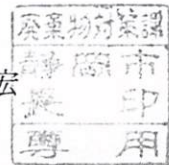 宏
廃棄物対策課
静岡市
長印
専用